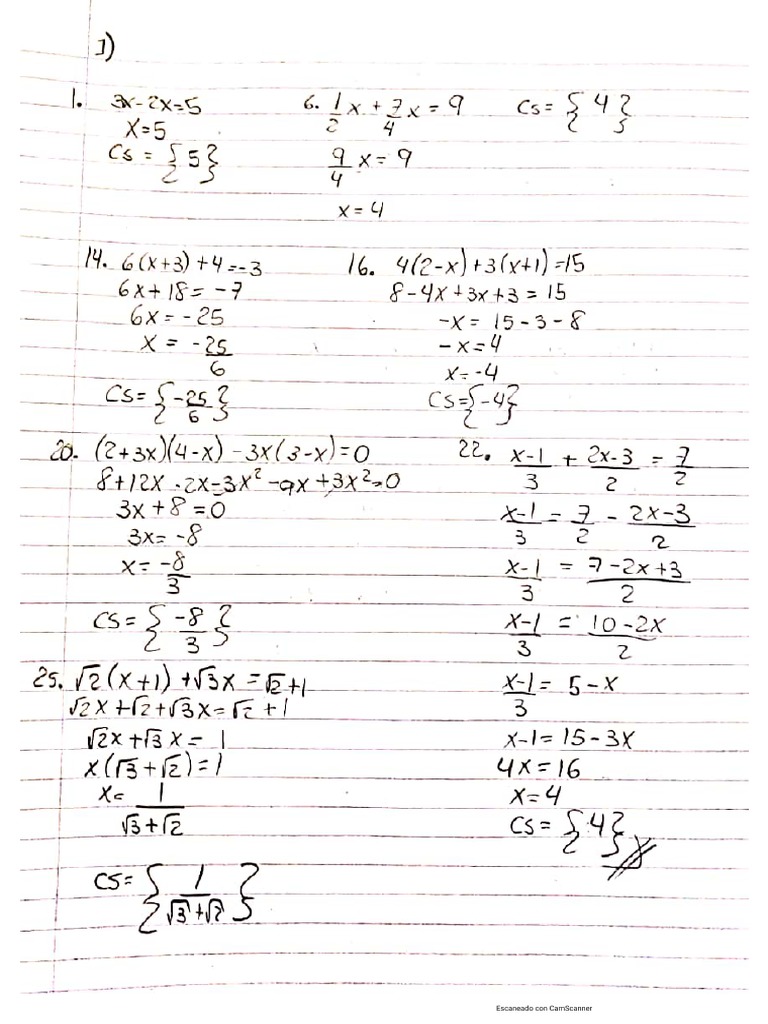 1)
1. 3x-2x=5
x=5
Cs = {5}
6. 1/2 x + 7/4 x = 9
9/4 x = 9
x = 4
Cs = {4}
14. 6(x+3)+4=-3
6x+18 = -7
6x = -25
x = -25/6
Cs = {-25/6}
16. 4(2-x)+3(x+1)=15
8-4x+3x+3 = 15
-x = 15-3-8
-x=4
x=-4
Cs={-4}
20. (2+3x)(4-x) -3x(3-x)=0
8+12x-2x-3x²-9x+3x²=0
3x+8=0
3x=-8
x=-8/3
Cs = {-8/3}
22. x-1/3 + 2x-3/2 = 7/2
x-1/3 = 7/2 - 2x-3/2
x-1/3 = 7-2x+3/2
x-1/3 = 10-2x/2
x-1/3 = 5-x
x-1=15-3x
4x=16
x=4
Cs = {4}
25. √2(x+1)+√3x=√2+1
√2x+√2+√3x=√2+1
√2x+√3x= 1
x(√3+√2)=1
x= 1/√3+√2
CS= {1/√3+√2}
Escaneado con CamScanner